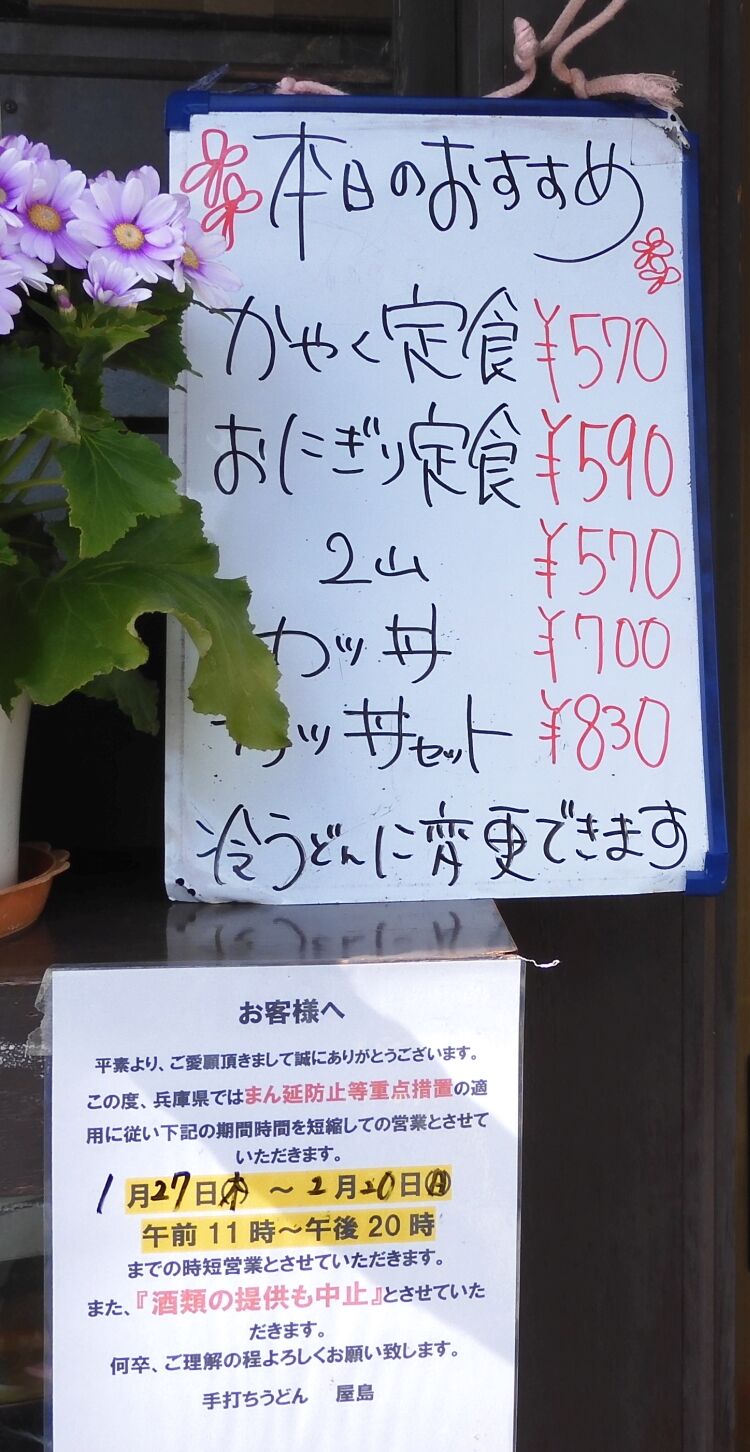 本日のおすすめ
かやく定食 ¥570
おにぎり定食 ¥590
2山 ¥570
カツ丼 ¥700
カツ丼セット ¥830
冷うどんに変更できます
お客様へ
平素より、ご愛願頂きまして誠にありがとうございます。
この度、兵庫県ではまん延防止等重点措置の適
用に従い下記の期間時間を短縮しての営業とさせて
いただきます。
1月27日木 ～ 2月20日㊐
午前 11 時～午後 20 時
までの時短営業とさせていただきます。
また、『酒類の提供も中止』とさせていた
だきます。
何卒、ご理解の程よろしくお願い致します。
手打ちうどん 屋島